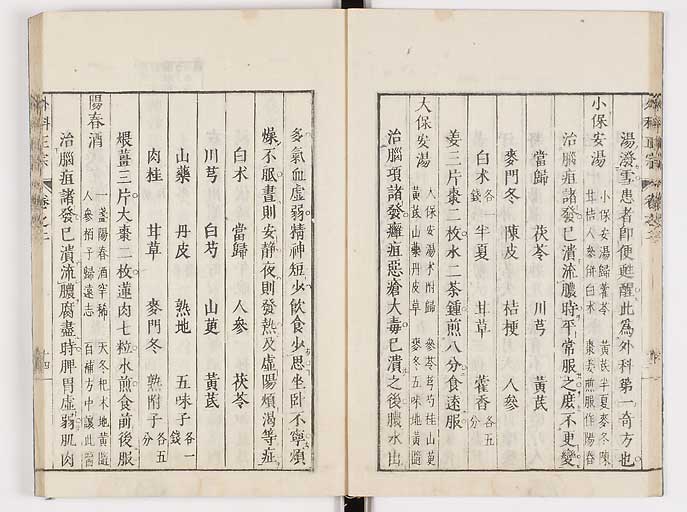 湯潑雪患者即便甦醒此為外科第一奇方也
小保安湯
小保安湯歸茯苓 黃芪半夏麥冬陳
甘桔人參併白术 棗姜煎服作陽春
治腦疽諸發已潰流膿時平常服之庶不更變
當歸 茯苓 川芎 黃芪
麥門冬 陳皮 桔梗 人參
白术各一錢 半夏 甘草 藿香各五分
姜三片棗二枚水二茶鍾煎八分食遠服
大保安湯
大保安湯术附歸 參苓芎芍桂山萸
黃芪山藥丹皮草 麥冬五味地黃隨
治腦項諸發癰疽惡瘡大毒已潰之後膿水出
多氣血虛弱精神短少飲食少思坐卧不寧煩
燥不眠晝則安靜夜則發熱及虛陽煩渴等症
白术 當歸 人參 茯苓
川芎 白芍 山萸 黃芪
山藥 丹皮 熟地 五味子各一錢
肉桂 甘草 麥門冬 熟附子各五分
煨薑三片大棗二枚蓮肉七粒水煎食前後服
陽春酒
一盞陽春酒罕稀 天冬杞术地黃隨
人參柏子歸遠志 百補方中讓此醫
治腦疽諸發已潰流膿腐盡時脾胃虛弱肌肉
外科正宗 卷之二 十四